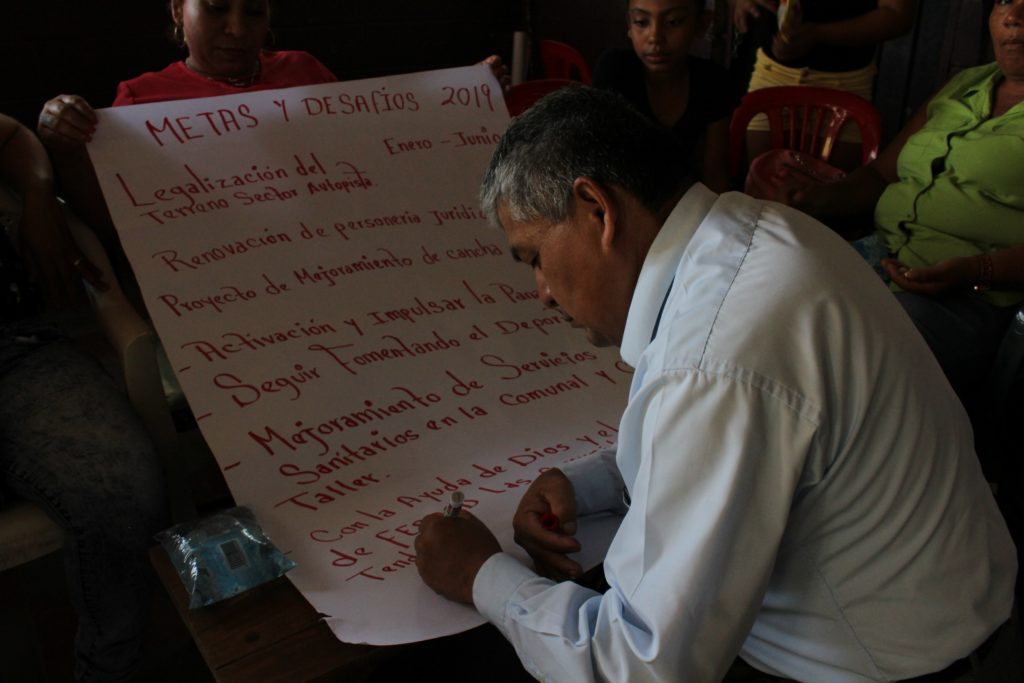 METAS Y DESAFÍOS 2019
Enero - Junio
Legalización del
Terreno Sector Autopista.
Renovación de personería Juridi
Proyecto de Mejoramiento de cancha
- Activación y Impulsar la
- Seguir Fomentando el Deport
- Mejoramiento de Servicios
Sanitarios en la Comunal y
Taller.
Con la Ayuda de Dios y el
de Las
Tend